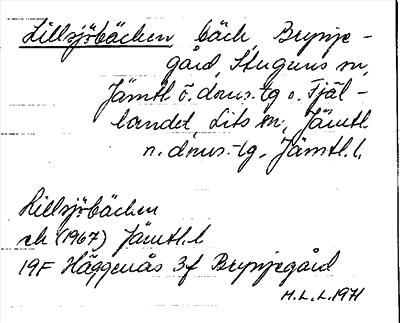 Lillsjöbäcken, bäck, Brynje-
gård, Stuguns sn,
Jämtl. ö. doms.-tg o. Fjäl-
landet, Lits sn, Jämtl.
n. doms.-tg, Jämtl. l.
Lillsjöbäcken
ek (1967) Jämtl. l
19F Häggenås 3f Brynjegård
H.L.L. 1971